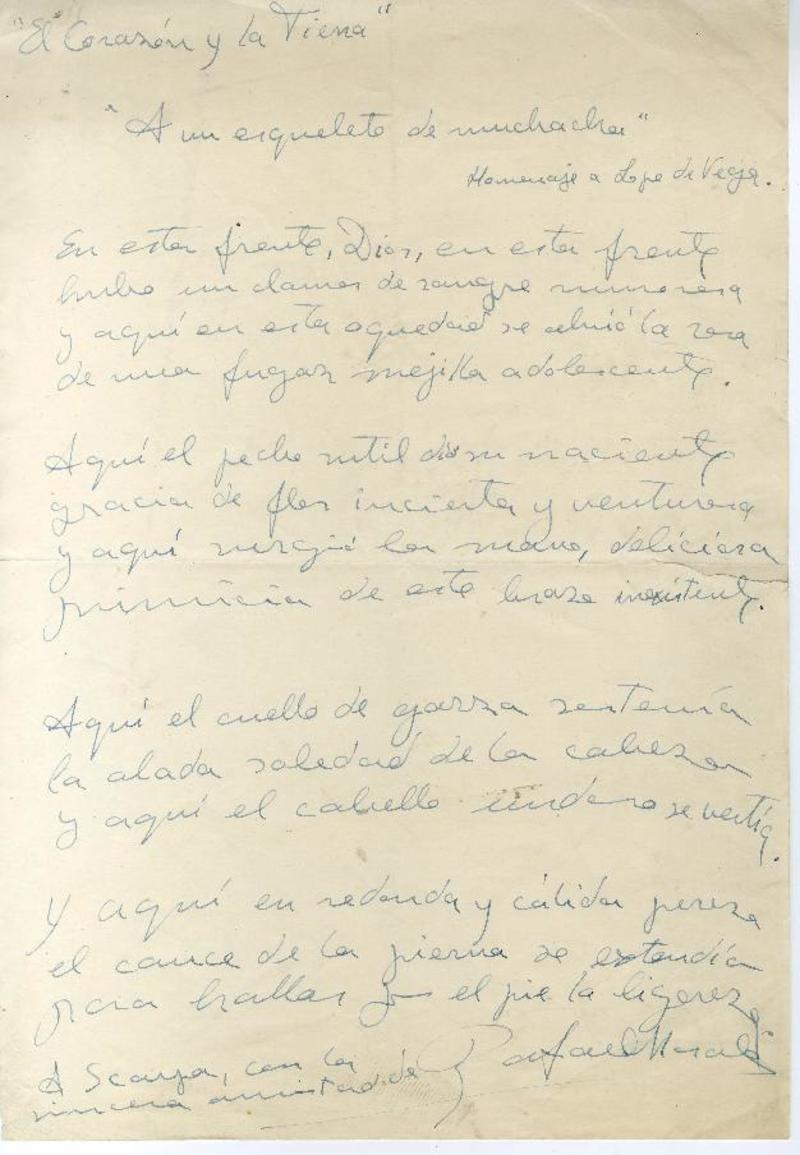 "El Corazón y la Tierra"
"A un esqueleto de muchacha"
Homenaje a Lope de Vega.
En esta frente, Dios, en esta frente
hubo un clamor de sangre rumorosa
y aquí en esta oquedad se abrió la rosa
de una fugaz mejilla adolescente.
Aquí el pecho sutil dió su naciente
gracia de flor incierta y venturosa
y aquí surgió la mano, deliciosa
primicia de este brazo inexistente.
Aquí el cuello de garza sostenía
la alada soledad de la cabeza
y aquí el cabello undoso se vertía.
Y aquí en redonda y cálida pereza
el cauce de la pierna se extendía
para hallar por el pie la ligereza
A Scarpa, con la
sincera amistad de Rafael Morales